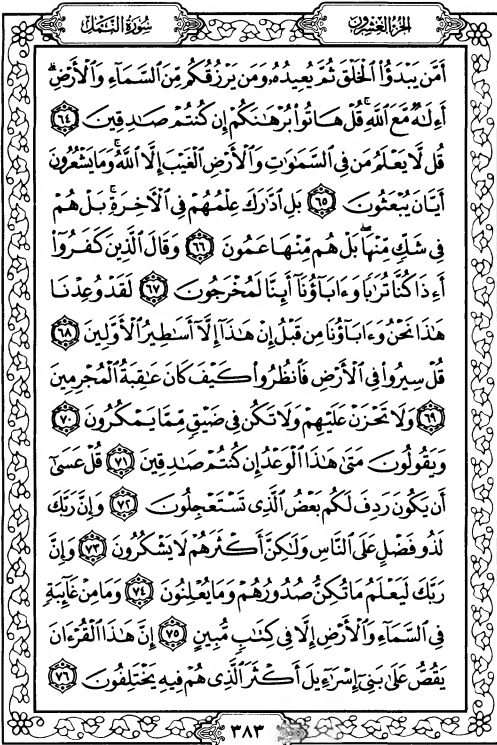 سُورَةُ النَّمۡل
الجُزءُ العِشرُون
أَمَّن يَبۡدَؤُاْ ٱلۡخَلۡقَ ثُمَّ يُعِيدُهُۥ وَمَن يَرۡزُقُكُم مِّنَ ٱلسَّمَآءِ وَٱلۡأَرۡضِۗ
أَءِلَٰهٞ مَّعَ ٱللَّهِۚ قُلۡ هَاتُواْ بُرۡهَٰنَكُمۡ إِن كُنتُمۡ صَٰدِقِينَ ٦٤
قُل لَّا يَعۡلَمُ مَن فِي ٱلسَّمَٰوَٰتِ وَٱلۡأَرۡضِ ٱلۡغَيۡبَ إِلَّا ٱللَّهُۚ وَمَا يَشۡعُرُونَ
أَيَّانَ يُبۡعَثُونَ ٦٥ بَلِ ٱدَّٰرَكَ عِلۡمُهُمۡ فِي ٱلۡأٓخِرَةِۚ بَلۡ هُمۡ
فِي شَكّٖ مِّنۡهَاۖ بَلۡ هُم مِّنۡهَا عَمُونَ ٦٦ وَقَالَ ٱلَّذِينَ كَفَرُوٓاْ
أَءِذَا كُنَّا تُرَٰبٗا وَءَابَآؤُنَآ أَئِنَّا لَمُخۡرَجُونَ ٦٧ لَقَدۡ وُعِدۡنَا
هَٰذَا نَحۡنُ وَءَابَآؤُنَا مِن قَبۡلُ إِنۡ هَٰذَآ إِلَّآ أَسَٰطِيرُ ٱلۡأَوَّلِينَ ٦٨
قُلۡ سِيرُواْ فِي ٱلۡأَرۡضِ فَٱنظُرُواْ كَيۡفَ كَانَ عَٰقِبَةُ ٱلۡمُجۡرِمِينَ
٦٩ وَلَا تَحۡزَنۡ عَلَيۡهِمۡ وَلَا تَكُن فِي ضَيۡقٖ مِّمَّا يَمۡكُرُونَ ٧٠
وَيَقُولُونَ مَتَىٰ هَٰذَا ٱلۡوَعۡدُ إِن كُنتُمۡ صَٰدِقِينَ ٧١ قُلۡ عَسَىٰٓ
أَن يَكُونَ رَدِفَ لَكُم بَعۡضُ ٱلَّذِي تَسۡتَعۡجِلُونَ ٧٢ وَإِنَّ رَبَّكَ
لَذُو فَضۡلٍ عَلَى ٱلنَّاسِ وَلَٰكِنَّ أَكۡثَرَهُمۡ لَا يَشۡكُرُونَ ٧٣ وَإِنَّ
رَبَّكَ لَيَعۡلَمُ مَا تُكِنُّ صُدُورُهُمۡ وَمَا يُعۡلِنُونَ ٧٤ وَمَا مِنۡ غَآئِبَةٖ
فِي ٱلسَّمَآءِ وَٱلۡأَرۡضِ إِلَّا فِي كِتَٰبٖ مُّبِينٍ ٧٥ إِنَّ هَٰذَا ٱلۡقُرۡءَانَ
يَقُصُّ عَلَىٰ بَنِيٓ إِسۡرَٰٓءِيلَ أَكۡثَرَ ٱلَّذِي هُمۡ فِيهِ يَخۡتَلِفُونَ ٧٦
٣٨٣